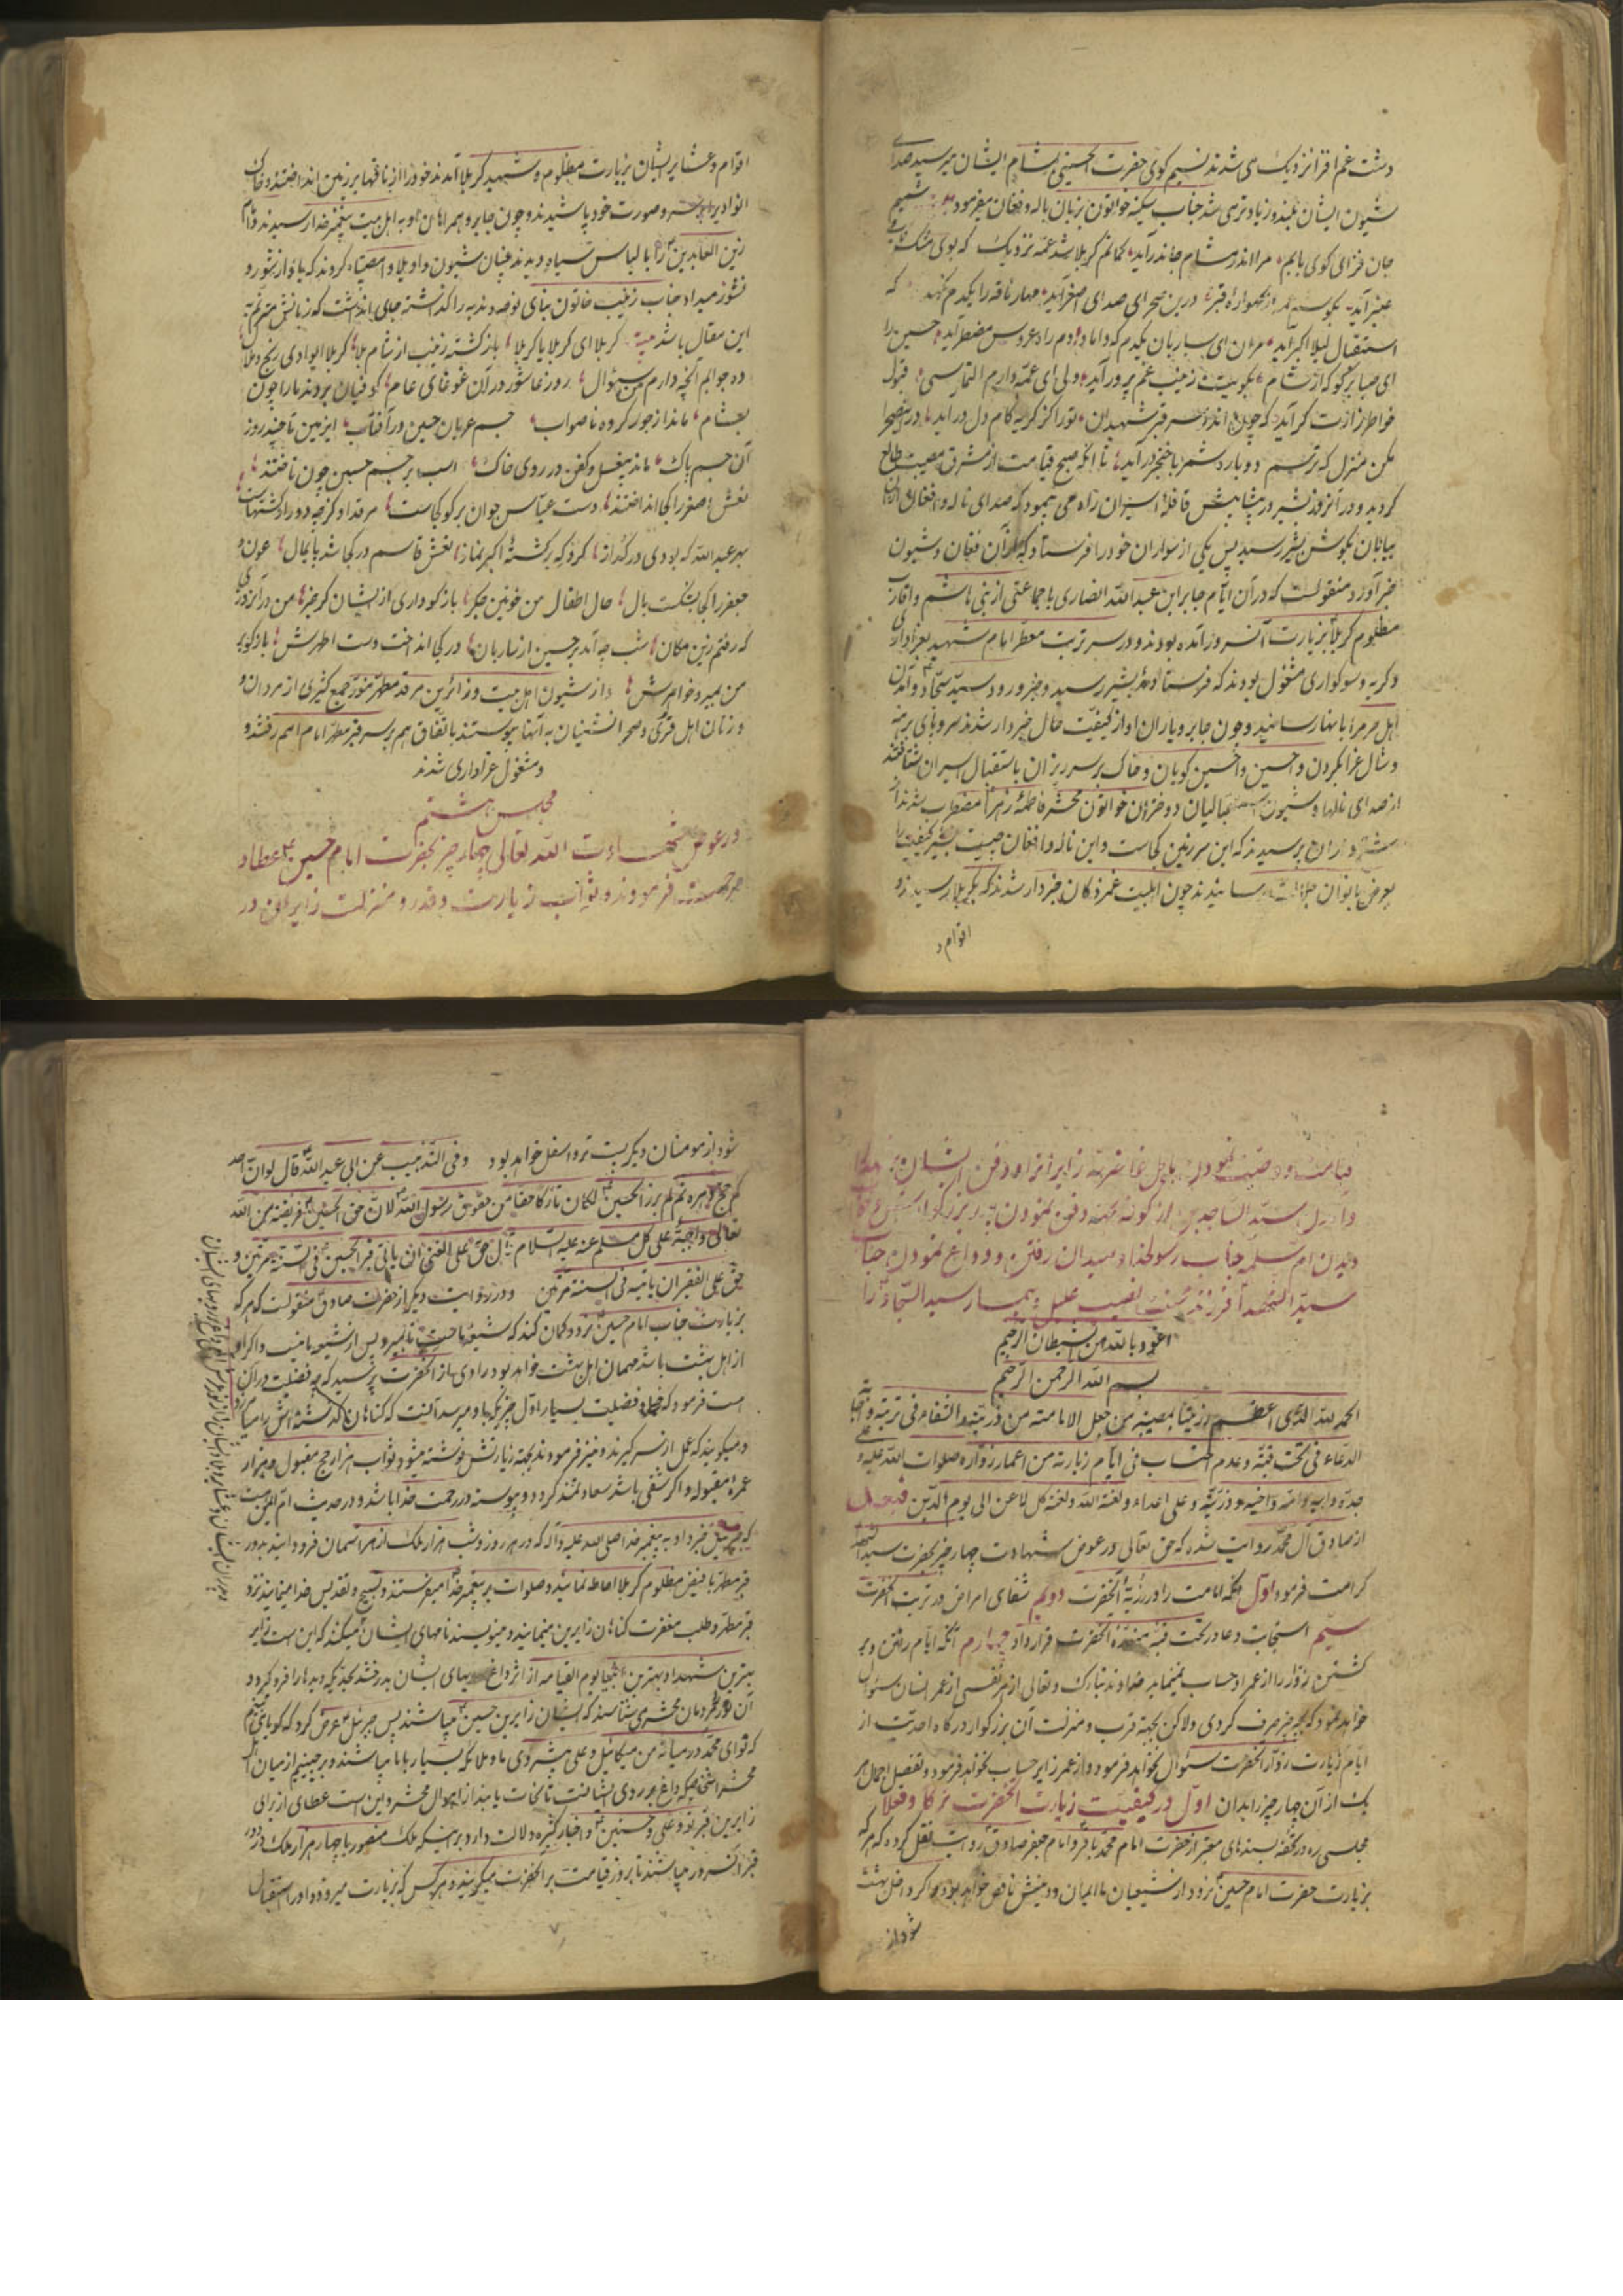 دشت غم افزا نزدیک می شدند نسیم کوی حضرت الحسینی بمشام ایشان میرسید صدای
شیون ایشان بلند و زیادتر می شد جناب سکینه خواتون بزبان ناله و فغان میفرمود شمیم
جان فزای کوی بابم مرا اندر مشام جان درآید کمانم کربلا شد عمه نزدیک که بوی مشک ناب و
عنبر آید بگوشم عمه از گهوارهٔ قبر درین صحرای صدای اصغر آید مهار ناقه را یکدم نگهدار که
استقبال لیلا اکبر آید مران ای ساربان یکدم که داماد دم راه عروس مضطر آید حسین را
ای صبا برگو که از شام بکویت زینب غم پرور آید ولی ای عمه دارم التماسی قبول
خاطر زارت گر آید که چون اندر سر قبر شهیدان تو را از گریه کام دل درآید درین صحرا
مکن منزل که ترسم دوباره شمر با خنجر درآید تا انکه صبح قیامت از مشرق مصیبت طالع
گردید و در آنروز بشیر در پیشاپیش قافلهٔ اسیران راه می پیمود که صدای ناله و افغان از آن
بیابان بگوش بشیر رسید پس یکی از سواران خود را فرستاد که از آن فغان و شیون
خبر آورد منقولست که در آن ایام جابر ابن عبدالله انصاری با جماعتی از بنی هاشم و اقارب
مظلوم کربلا بزیارت آنسرور آمده بودند و در سر تربت معطر امام شهید بعزاداری
و گریه و سوکواری مشغول بودند که فرستادهٔ بشیر رسید و خبر ورود سید سجاد و آمدن
اهل حرم را بانها رسانید و چون جابر و یاران او از کیفیت حال خبردار شدند سر و پای برهنه
و شال عزا بگردن وا حسین وا حسین گویان و خاک بر سر ریزان باستقبال اسیران شتافتند
از صدای نالها و شیون دختران خواتون محشر فاطمهٔ زهرا مضطرب شدند از
پرسیدند که این سرزمین کجاست و این ناله و افغان چیست بشیر کیفیت را
بعرض بانوان رسانیدند چون اهلبیت غمزدگان خبردار شدند که بکربلا رسیدند و
اقوام و
اقوام و عشایر ایشان بزیارت مظلوم و شهید کربلا آمدند خود را از ناقها بر زمین انداختند و خاک
آنوادی را بر سر و صورت خود پاشیدند و چون جابر و همراهان او به اهل بیت پیغمبر خدا رسیدند و امام
زین العابدین را با لباس سیاه دیدند چنان شیون واویلا و امصیبتاه کردند که یاد از شور و
نشور میداد جناب زینب خاتون بنای نوحه و ندبه را گذاشته جای انداشت که زبانش مترنم به
این مقال باشد کربلا ای کربلا یا کربلا بازگشته زینب از شام بلا کربلا ای وادی رنج و بلا
ده جوابم آنچه دارم من سؤال روز عاشور در آن غوغای عام کوفیان بردند ما را چون
بشام ماند از جور گروه ناصواب جسم عریان حسین در آفتاب این زمین تا چند روز
آن جسم پاک ماند بیغسل و کفن در روی خاک اسب بر جسم حسین چون تاختند
نعش اصغر را کجا انداختند دست عباس جوان برگو کجاست مرقد او گرچه دور از دشتهاست
بهر عبدالله که بودی در گداز کرد که برکشتهٔ اکبر نماز نعش قاسم در کجا شد پایمال عون و
جعفر را کجا بشکست بال حال اطفال من خونین جگر باز گو داری از ایشان گر خبر من در آنروزی
که رفتم زین مکان شب چه آمد بر حسین از ساربان در کجا انداخت دست اطهرش باز گو بر
من بمیرد خواهرش و از شیون اهل بیت و زائرین مرقد مطهر منور جمع کثیری از مردان و
و زنان اهل قری و صحرانشینان به آنها پیوستند باتفاق هم بر سر قبر مطهر امام امم رفتند و
و مشغول عزاداری شدند
مجلس هشتم
در عوض شهادت الله تعالی چهار چیز بحضرت امام حسین عطا و
مرحمت فرمودند و ثواب زیارت و قدر و منزلت زایران در
قیامت و وصیت نمودن باهل غاضریه زایر و زاد و دفن ایشان
و آمدن سید الساجدین از کوفه بجهت دفن نمودن پدر بزرگوارش و
دیدن ام سلمه جناب رسولخدا و میدان رفتن و وداع نمودن جناب
سید الشهدا فرزند علیل و بیمار سید السجاد را
اعوذ بالله من الشیطان الرجیم
بسم الله الرحمن الرحیم
الحمد لله الذی اعظم رزیتنا بمصیبة من جعل الامامة من ذریته و الشفاء فی تربته و اجابة
الدعاء فی تحت قبته و عدم احتساب فی ایام زیارته من اعمار زواره صلوات الله علیه و علی
جده و ابیه و امه و اخیه و ذریته و علی اعداءه لعنة الله و لعنة کل لاعن الی یوم الدین فبعد
از صادق آل محمد روایت شده که حق تعالی در عوض شهادت چهار چیز بحضرت سید الشهدا
کرامت فرمود اول انکه امامت را در ذریهٔ آنحضرت دویم شفای امراض در تربت آنحضرت
سیم استجابت دعا در تحت قبهٔ منورهٔ آنحضرت قرار داد چهارم آنکه ایام رفتن و بر
گشتن زوار را از عمر او حساب نمینماید خداوند تبارک و تعالی از هر نفسی از عمر انسان سئوال
خواهد نمود که بچه چیز صرف کردی ولاکن بجهة قرب و منزلت آن بزرگوار در درگاه احدیت از
ایام زیارت زوار آنحضرت سئوال نخواهد فرمود و از عمر زایر حساب نخواهد فرمود و تفصیل اجمال هر
یک از آن چهار چیز را بدان اول در کیفیت زیارت آنحضرت ترکا و فعلا
مجلسی ره در تحفه بسندهای معتبر از حضرت امام محمد باقر و امام جعفر صادق روایت نقل کرده که هر که
بزیارت حضرت امام حسین نرود از شیعیان ما ایمان و دینش ناقص خواهد بود و اگر داخل بهشت
شود از
شود از مومنان دیگر پست تر و اسفل خواهد بود و فی التهذیب عن ابی عبدالله قال لو ان احد
کم حج دهره ثم لم یزر الحسین لکان تارکا حقا من حقوق رسول الله لان حق الحسین فریضة من الله
تعالی واجبة علی کل مسلم عنه علیه السلام قال حق علی الغنی ان یاتی قبر الحسین فی السنة مرتین و
حق علی الفقیر ان یاتیه فی السنة مرتین و در روایت دیگر از حضرت صادق منقولست که هر که
بزیارت جناب امام حسین نرود و گمان کند که شیعهٔ ماست تا بمیرد پس او شیعهٔ ما نیست و اگر او
از اهل بهشت باشد مهمان اهل بهشت خواهد بود راوی باز از آنحضرت پرسید که چه فضیلت در آن
هست فرمود که فضیلت بسیار اول چیزیکه باو میرسد آنست که گناهان گذشته اش را میامرزد
و میگویند که عمل از سر گیرند و نیز فرمودند بجهة زیارتش نوشته میشود ثواب هزار حج مقبول و هزار
عمرهٔ مقبوله و اگر شقی باشد سعادتمند گردد و پیوسته در رحمت خدا باشد و در حدیث ام ایمن است
که جبرئیل خبر داد به پیغمبر خدا صلی الله علیه و آله که در هر روز و شب هزار ملک از هر آسمان فرود آیند بدور
قبر مطهر با فیض مظلوم کربلا احاطه نمایند و صلوات بر پیغمبر خدا میفرستند و تسبیح و تقدیس خدا مینمایند نزد
قبر مطهر و طلب مغفرت گناهان زایرین مینمایند و مینویسند نامهای ایشان را میگویند که این است زایر
بهترین شهدا و بهترین انبیا یوم القیامه از اثر داغ روی های ایشان بدرخشد بحدیکه دیدها را فرو گیرد و
آن نور مردمان محشر بشناسند که ایشان زایرین حسین میباشند پس جبرئیل عرض کرد که گویا می بینم
که تو ای محمد در میانهٔ من و میکائیل و علی پیشروی ما و ملائکه بسیار با ما میباشند و برچینیم از میان اهل
محشر اشخاصیکه داغ بر روی ایشانست تا نجات یابند از اهوال محشر و این است عطای از برای
زایرین قبر تو و علی و حسنین و اخبار کثیره دلالت دارد بر اینکه ملک منصور با چهار هزار ملک در دور
قبر آنسرور میباشند تا بروز قیامت بر آنحضرت میگریند و هر کس که بزیارت میرود او را استقبال